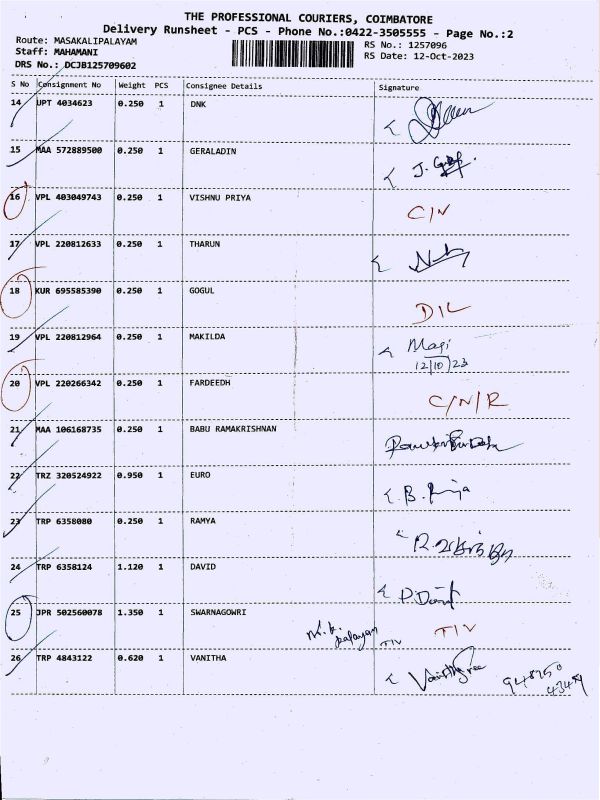 THE PROFESSIONAL COURIERS, COIMBATORE
Delivery Runsheet - PCS - Phone No.:0422-3505555 - Page No.:2
Route: MASAKALIPALAYAM
Staff: MAHAMANI
DRS No.: DCJB125709602
RS No.: 1257096
RS Date: 12-Oct-2023
S No Consignment No Weight PCS Consignee Details Signature
14 UPT 4034623 0.250 1 DNK
15 MAA 572889500 0.250 1 GERALADIN J.
16 VPL 403049743 0.250 1 VISHNU PRIYA C/N
17 VPL 220812633 0.250 1 THARUN
18 KUR 695585390 0.250 1 GOGUL D/L
19 VPL 220812964 0.250 1 MAKILDA Magi
12/10/23
20 VPL 220266342 0.250 1 FARDEEDH C/N/R
21 MAA 106168735 0.250 1 BABU RAMAKRISHNAN
22 TRZ 320524922 0.950 1 EURO B.
23 TRP 6358080 0.250 1 RAMYA R.
24 TRP 6358124 1.120 1 DAVID P. David
25 JPR 502560078 1.350 1 SWARNAGOWRI T/V
T/V
26 TRP 4843122 0.620 1 VANITHA